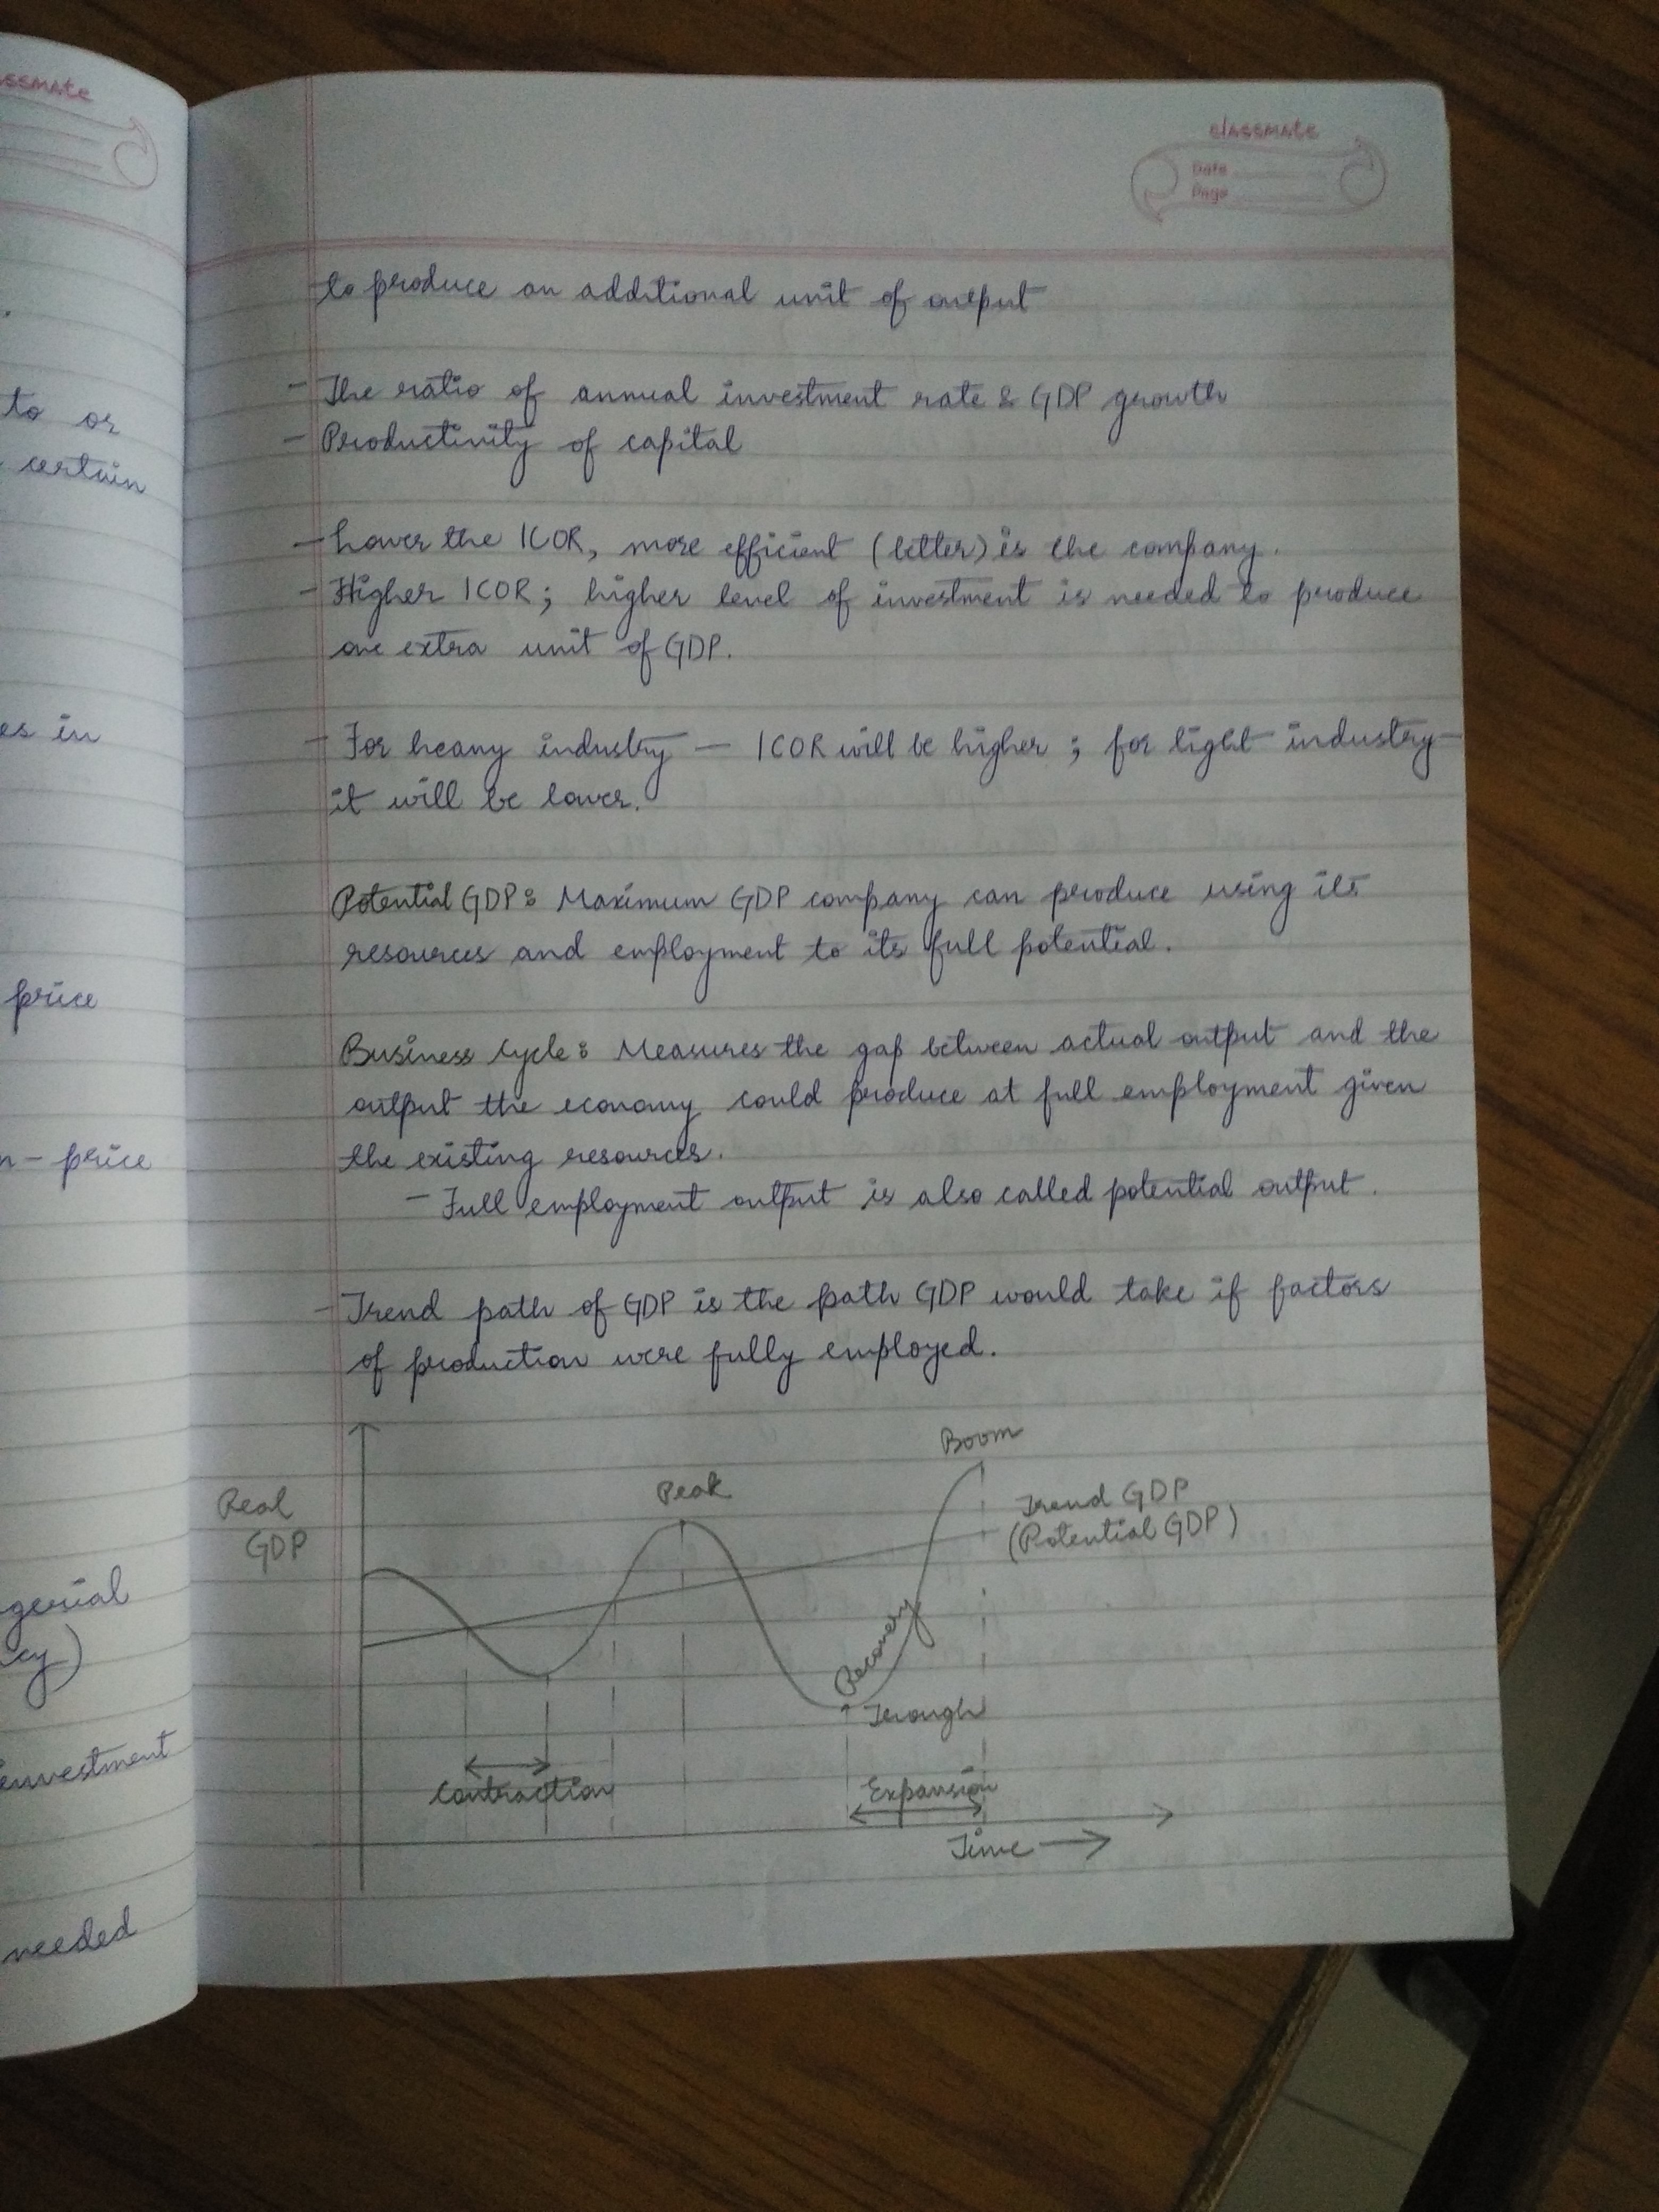 ssmate
to or
certain
es in
price
n - price
gerial
cy)
investment
needed
classmate
Date
Page
to produce an additional unit of output
- The ratio of annual investment rate & GDP growth
- Productivity of capital
- Lower the ICOR, more efficient (better) is the company.
- Higher ICOR; higher level of investment is needed to produce
one extra unit of GDP.
- For heavy industry - ICOR will be higher ; for light industry
it will be lower.
Potential GDP: Maximum GDP company can produce using its
resources and employment to its full potential.
Business Cycle: Measures the gap between actual output and the
output the economy could produce at full employment given
the existing resources.
- Full employment output is also called potential output.
- Trend path of GDP is the path GDP would take if factors
of production were fully employed.
Boom
Peak
Real
GDP
Trend GDP
(Potential GDP)
Recovery
Trough
Contraction
Expansion
Time